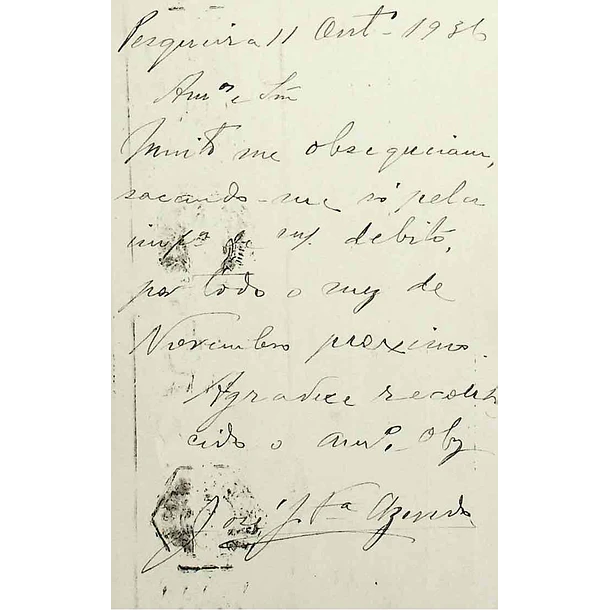 Pesqueira 11 Outº. 1936
Amº e Snr
Muito me obsequeiam,
sacando-me só pela
impª de m/. debito,
por todo o mez de
Novembro proximo.
Agradece reconhe
cido o amº. Obg
José J. Azevedo